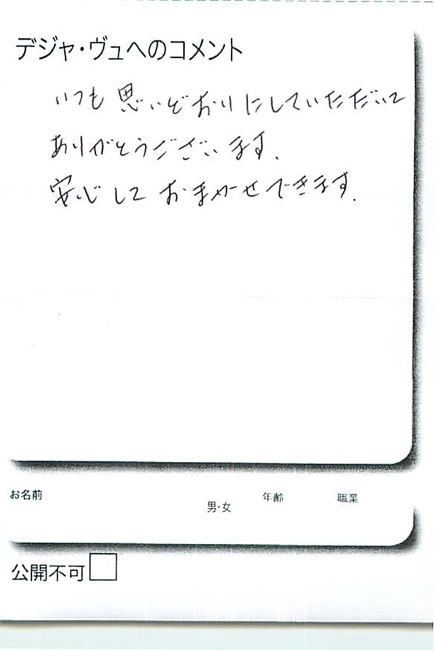 デジャ・ヴュへのコメント
いつも思いどおりにしていただいて
ありがとうございます.
安心しておまかせできます.
お名前
男・女
年齢
職業
公開不可